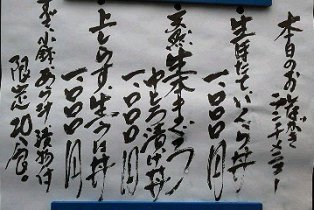 本日のおすすめ
ランチメニュー
・生ほたていくら丼
一〇〇〇円
・天然生本まぐろ
中とろ漬け丼
一〇〇〇円
・上しらす、生うに丼
一〇〇〇円
限定20食